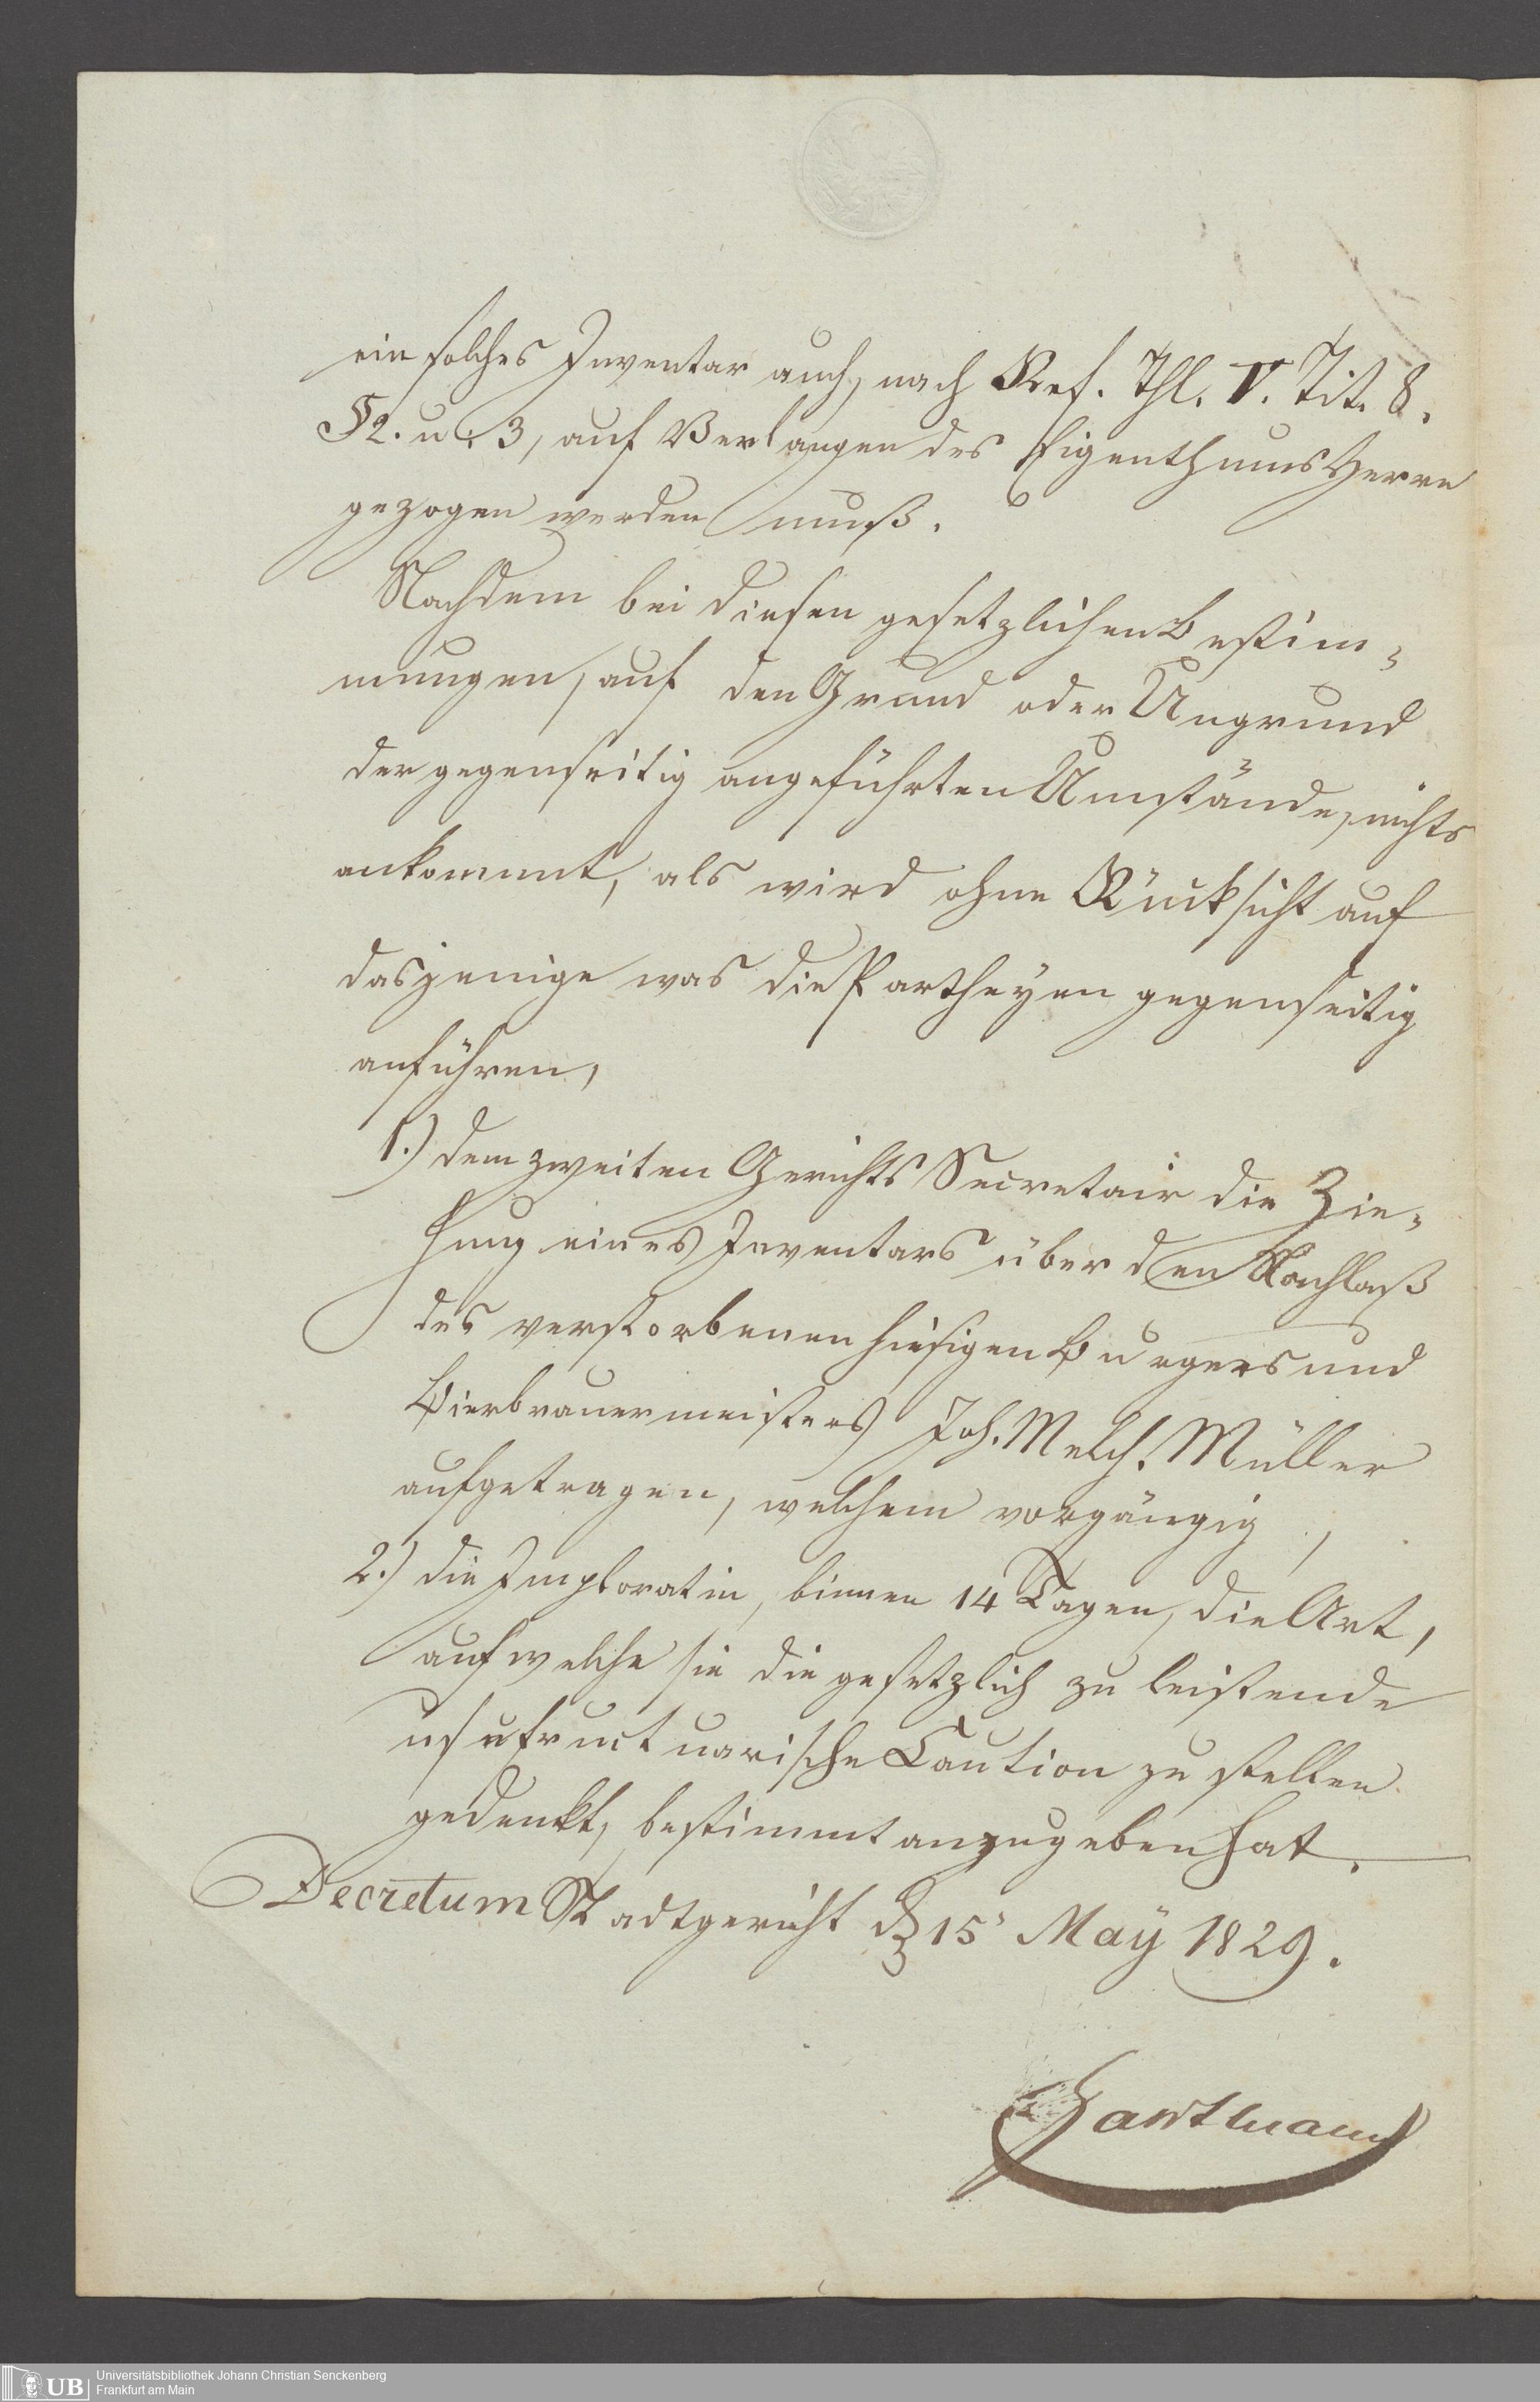 ein solches Inventar auch, nach Ref. Thl. V. Tit. 8.
§ 2. u. 3, auf Verlangen des Eigenthums Herrn
gezogen werden muß.
Nachdem bei diesen gesetzlichen Bestim-
mungen, auf den Grund oder Ungrund
der gegenseitig angeführten Umstände, nichts
ankommt, als wird ohne Rücksicht auf
dasjenige was die Partheyen gegenseitig
anführen,
1.) dem zweiten Gerichts Secretair die Zie-
hung eines Inventars über den Nachlaß
des verstorbenen hiesigen Burgers und
Bierbrauermeisters Joh. Melch. Müller
aufgetragen, welchem vorgängig,
2.) die Imploratin, binnen 14 Tagen, die Art,
auf welche sie die gesetzlich zu leistende
usufructuarische Caution zu stellen
gedenkt, bestimmt anzugeben hat.
Decretum Stadtgericht d 15 Maÿ 1829.
Hartmann
UB
Universitätsbibliothek Johann Christian Senckenberg
Frankfurt am Main